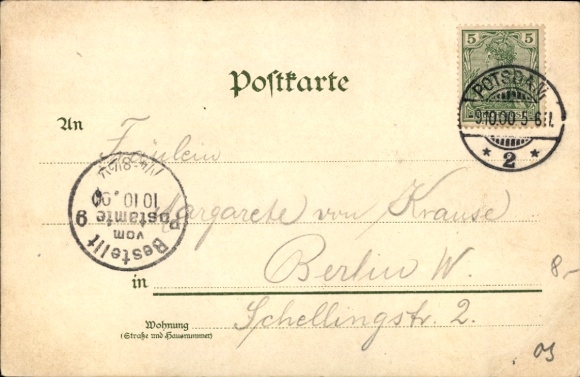 Postkarte
5 5
POTSDAM
9.10.00 5-6N.
* 2 *
An
Fräulein
Margarete von Krause
in Berlin W.
Wohnung
(Straße und Hausnummer)
Schellingstr. 2.
Bestellt
vom
Postamte 9
10 10. 00
8-
03